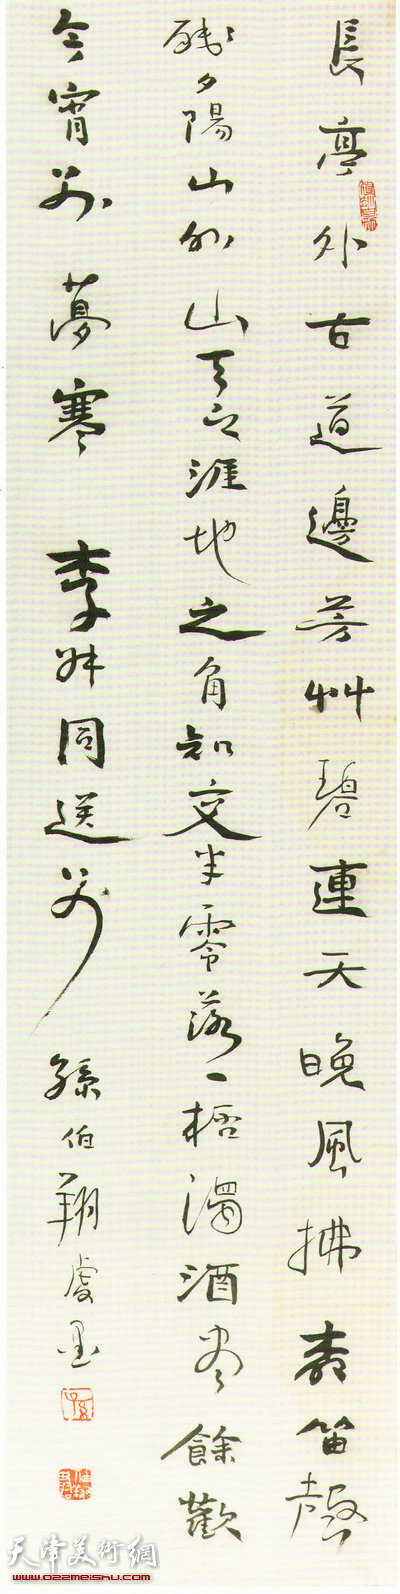 長亭外古道邊芳艸碧連天晚風拂柳笛聲
殘夕陽山外山天之涯地之角知交半零落一桮濁酒尽餘歡
今宵別夢寒 李叔同送別 孫伯翔虔墨
天津美術網
www.022meishu.com